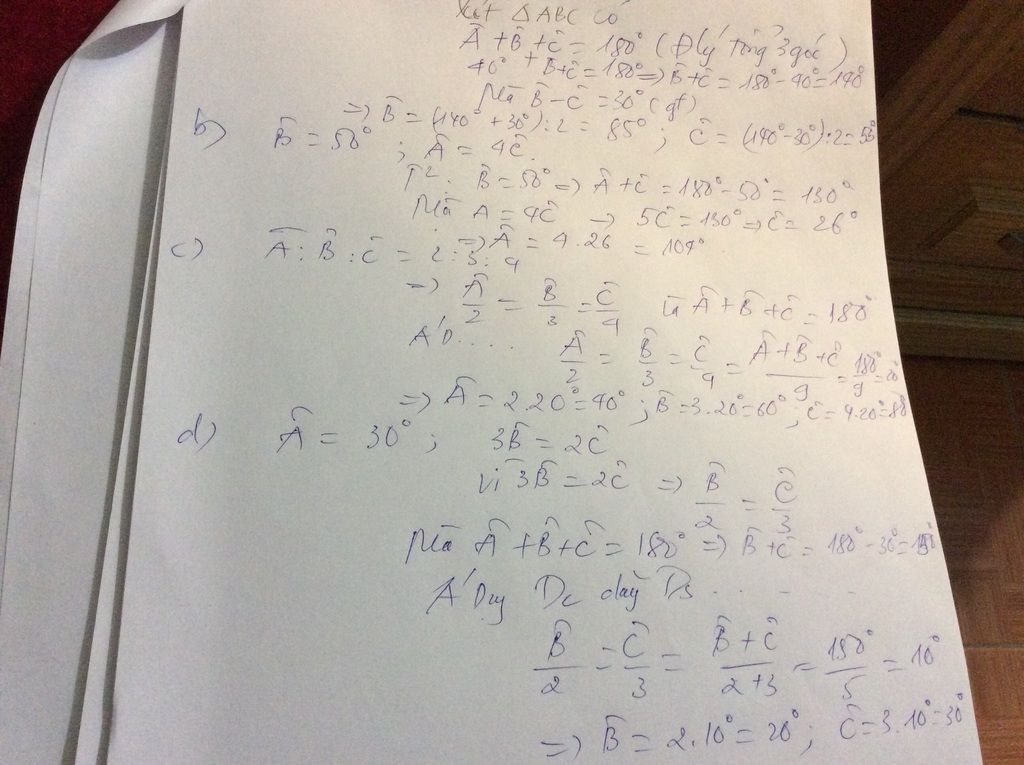 Xét △ABC có
Â + B̂ + Ĉ = 180° (Đlý tổng 3 góc)
40° + B̂+Ĉ = 180° => B̂+Ĉ = 180° - 40° = 140°
Mà B̂ - Ĉ = 30° (gt)
=> B̂ = (140° + 30°) : 2 = 85° ; Ĉ = (140° - 30°) : 2 = 55°
b) B̂ = 50° ; Â = 4Ĉ.
T²: B̂ = 50° => Â + Ĉ = 180° - 50° = 130°
Mà A = 4Ĉ → 5Ĉ = 130° => Ĉ = 26°
=> Â = 4.26 = 104°.
c) Â : B̂ : Ĉ = 2 : 3 : 4
=> Â/2 = B̂/3 = Ĉ/4 và Â + B̂ + Ĉ = 180°
A'D.....
Â/2 = B̂/3 = Ĉ/4 = Â+B̂+Ĉ/9 = 180°/9 = 20°
=> Â = 2.20° = 40° ; B̂ = 3.20° = 60° ; Ĉ = 4.20 = 80°
d) Â = 30° ; 3B̂ = 2Ĉ
Vì 3B̂ = 2Ĉ => B̂/2 = Ĉ/3
Mà Â + B̂ + Ĉ = 180° => B̂ + Ĉ = 180° - 30° =
Á Dụng Dc dãy Ds . . . .
B̂/2 = Ĉ/3 = B̂+Ĉ/2+3 = /5 = 10°
=> B̂ = 2.10° = 20° ; Ĉ = 3.10° = 30°